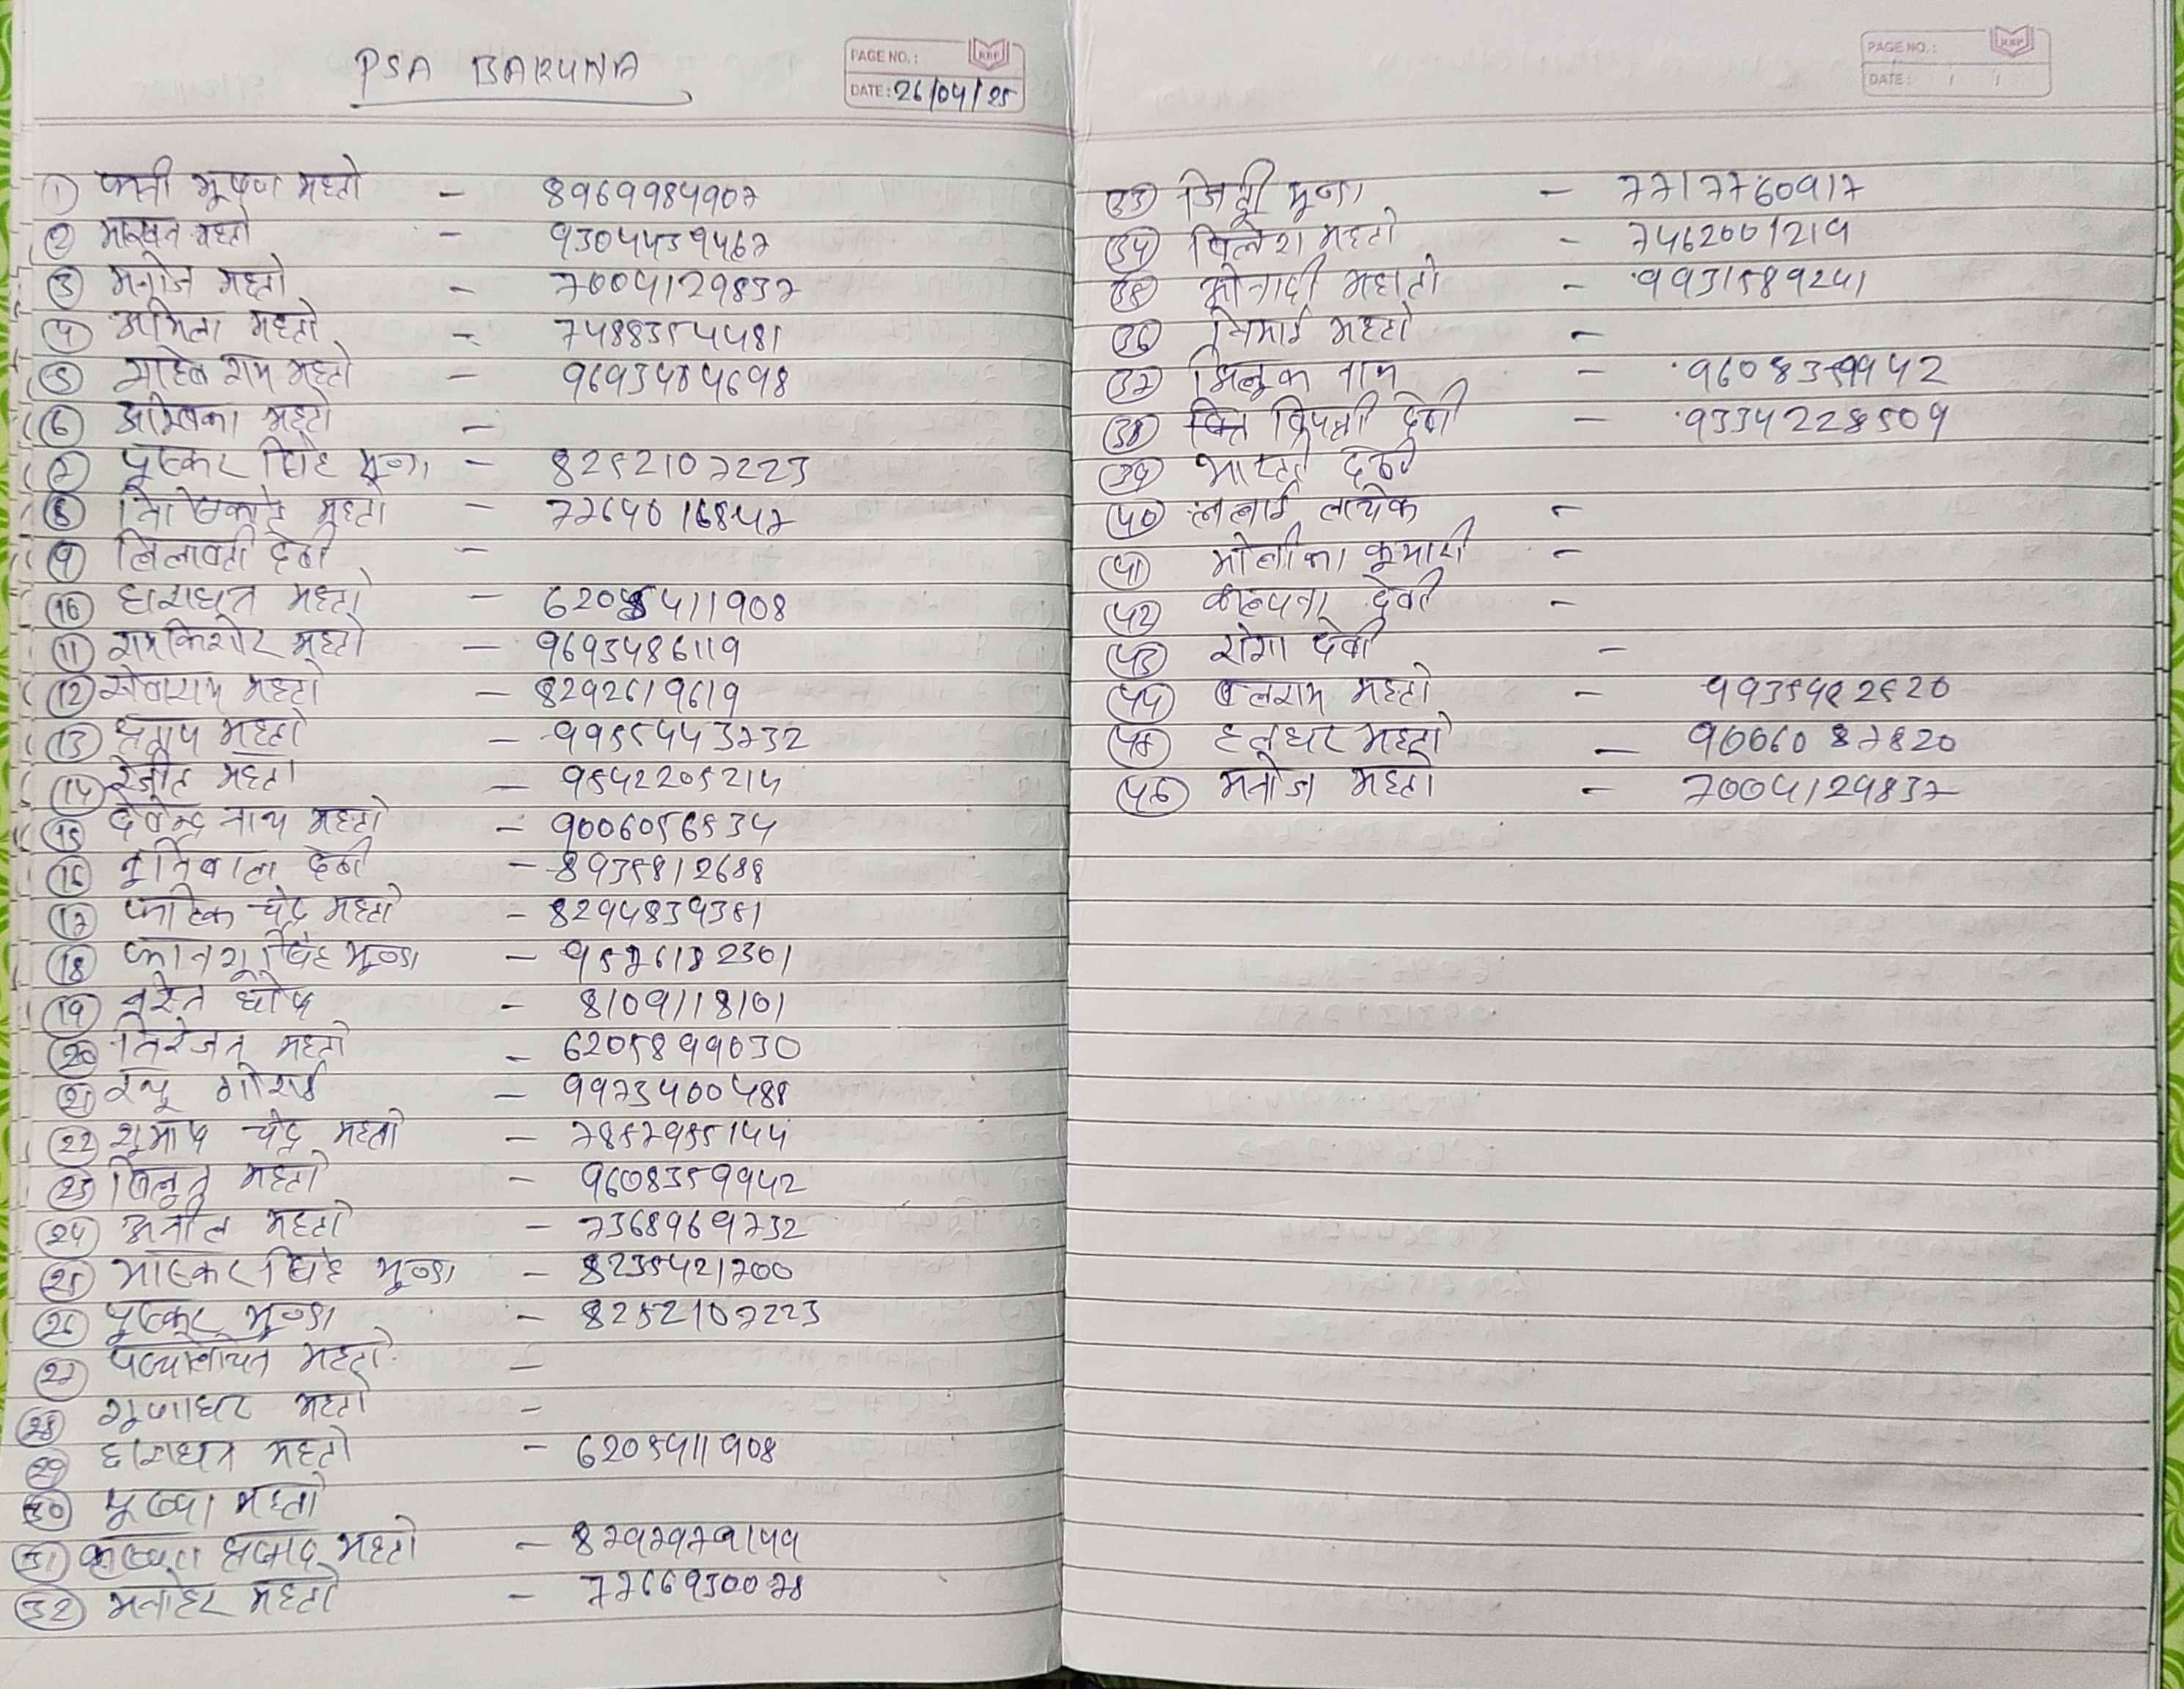 PSA BARUNA
PAGE NO.:
DATE: 26/04/25
① फनी भूषण महतो - 8969984907
② माखन महतो - 9304439467
③ मनोज महतो - 7004129837
④ अमिता महतो - 7488354481
⑤ साहेब राम महतो - 9693484698
⑥ अम्बिका महतो -
⑦ पुष्कर सिंह मुण्डा - 8252107223
⑧ महतो - 7764016847
⑨ लिलावती देवी -
⑩ हाराधन महतो - 6205411908
⑪ रामकिशोर महतो - 9693486119
⑫ सेवाराम महतो - 8292619619
⑬ प्रताप महतो - 9955443732
⑭ रंजीत महतो - 9542205214
⑮ देवेन्द्र नाथ महतो - 9006056534
⑯ देवी - 8935812688
⑰ फटिक चंद्र महतो - 8294839361
⑱ फालगु सिंह मुण्डा - 9576182301
⑲ नरेन घोष - 8109118101
⑳ निरंजन महतो - 6205899030
㉑ गोराई - 9973400488
㉒ सुभाष चंद्र महतो - 7857955144
㉓ महतो - 9608359942
㉔ अनील महतो - 7368969732
㉕ भास्कर सिंह मुण्डा - 8235421700
㉖ पुष्कर मुण्डा - 8252107223
㉗ महतो -
㉘ गुणाधर महतो -
㉙ हाराधन महतो - 6205411908
㉚ महतो
㉛ प्रसाद महतो - 8797979144
㉜ मनोहर महतो - 7766930078
PAGE NO.:
DATE: / /
㉝ मुण्डा - 7717760917
㉞ महतो - 7462001219
㉟ महातो - 9931589241
㊱ निमाई महतो -
㊲ - 9608359942
㊳ देवी - 9334228509
㊴ भारती देवी
㊵ -
㊶ कुमारी -
㊷ कल्पना देवी -
㊸ देवी -
㊹ बलराम महतो - 9935482520
㊺ हलधर महतो - 9006087820
㊻ मनोज महतो - 7004129837